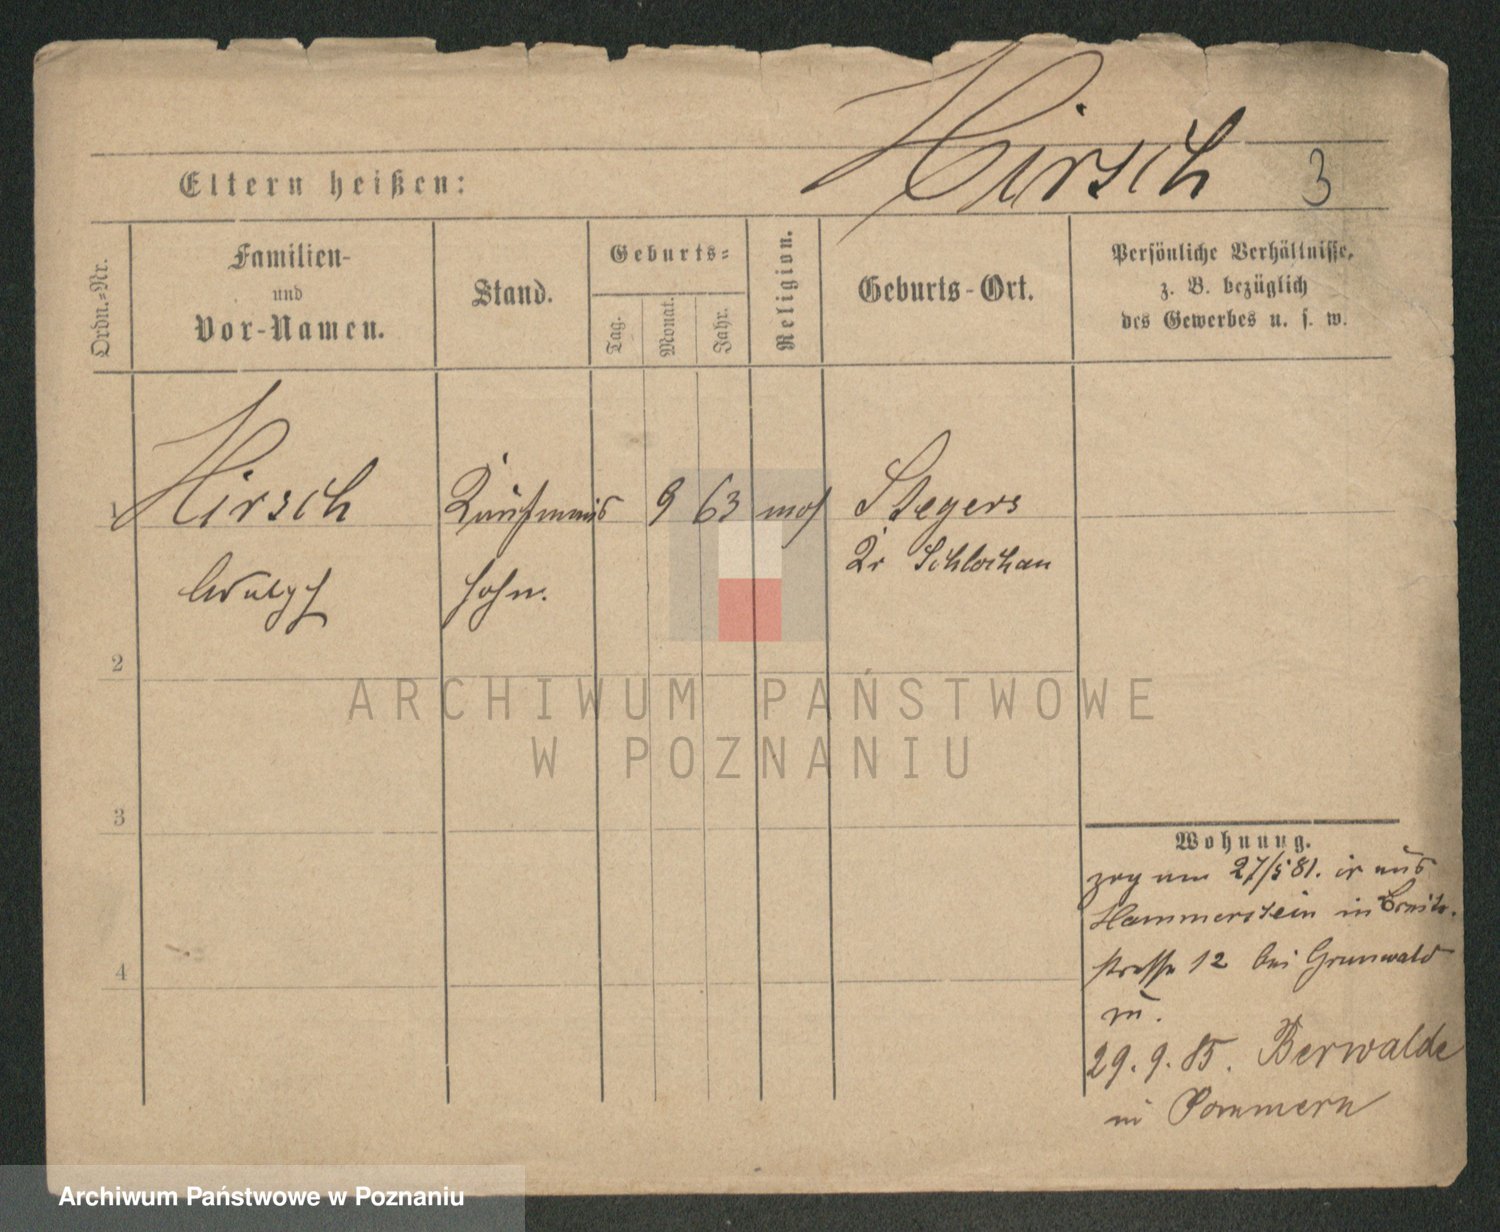 Hirsch 3
Eltern heißen:
Ordn.=Nr.
Familien-
und
Vor-Namen.
Stand.
Geburts=
Tag.
Monat.
Jahr.
Religion.
Geburts-Ort.
Persönliche Verhältnisse,
z. B. bezüglich
des Gewerbes u. s. w.
1 Hirsch Kaufmanns 9 63 mos Stegers
Kr Schlochau
Wulff sohn.
2
3
4
Wohnung.
zog am 27/5 81. aus
Hammerstein in
strasse 12 bei Grunwald
29. 9. 85. Berwalde
in Pommern
ARCHIWUM PAŃSTWOWE
W POZNANIU
Archiwum Państwowe w Poznaniu